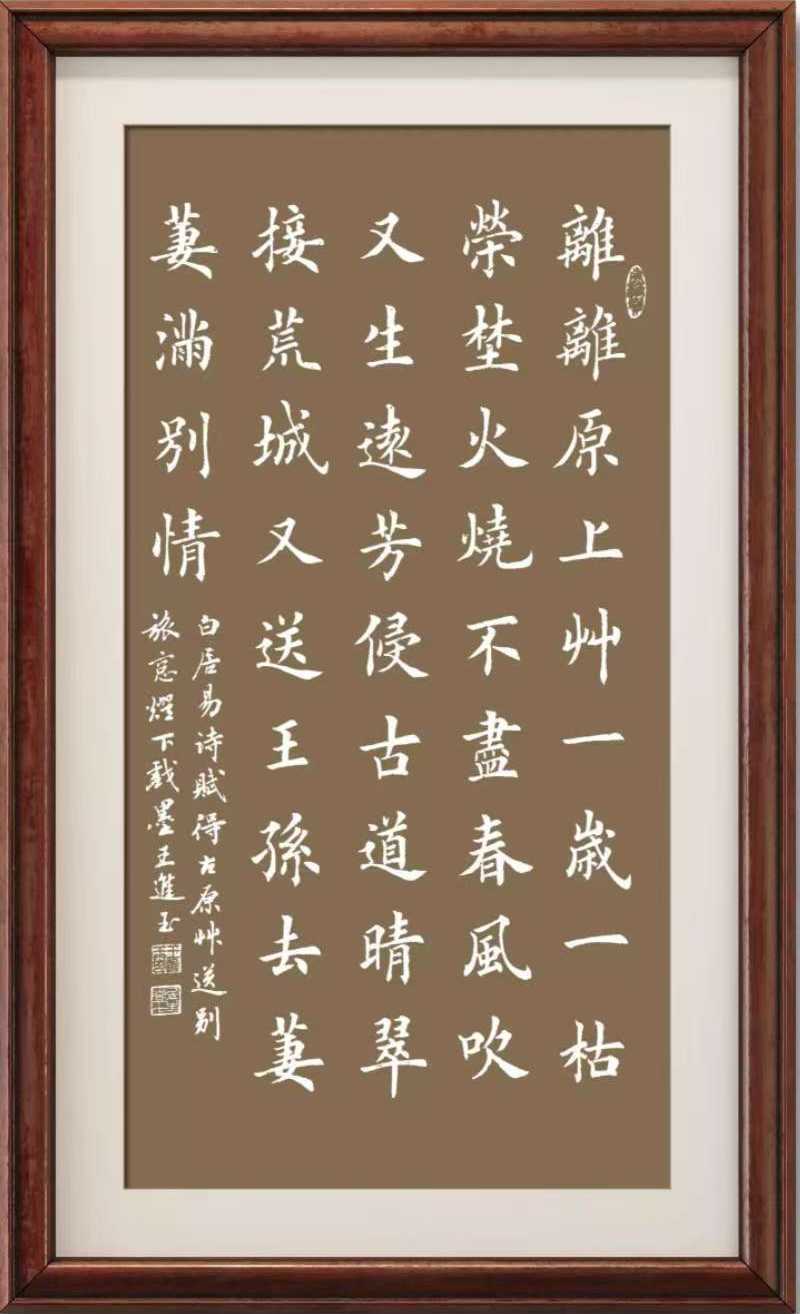 離離原上艸一歲一枯
榮埜火燒不盡春風吹
又生遠芳侵古道晴翠
接荒城又送王孫去萋
萋滿別情
白居易诗賦得古原艸送别
旅下戲墨王進玉